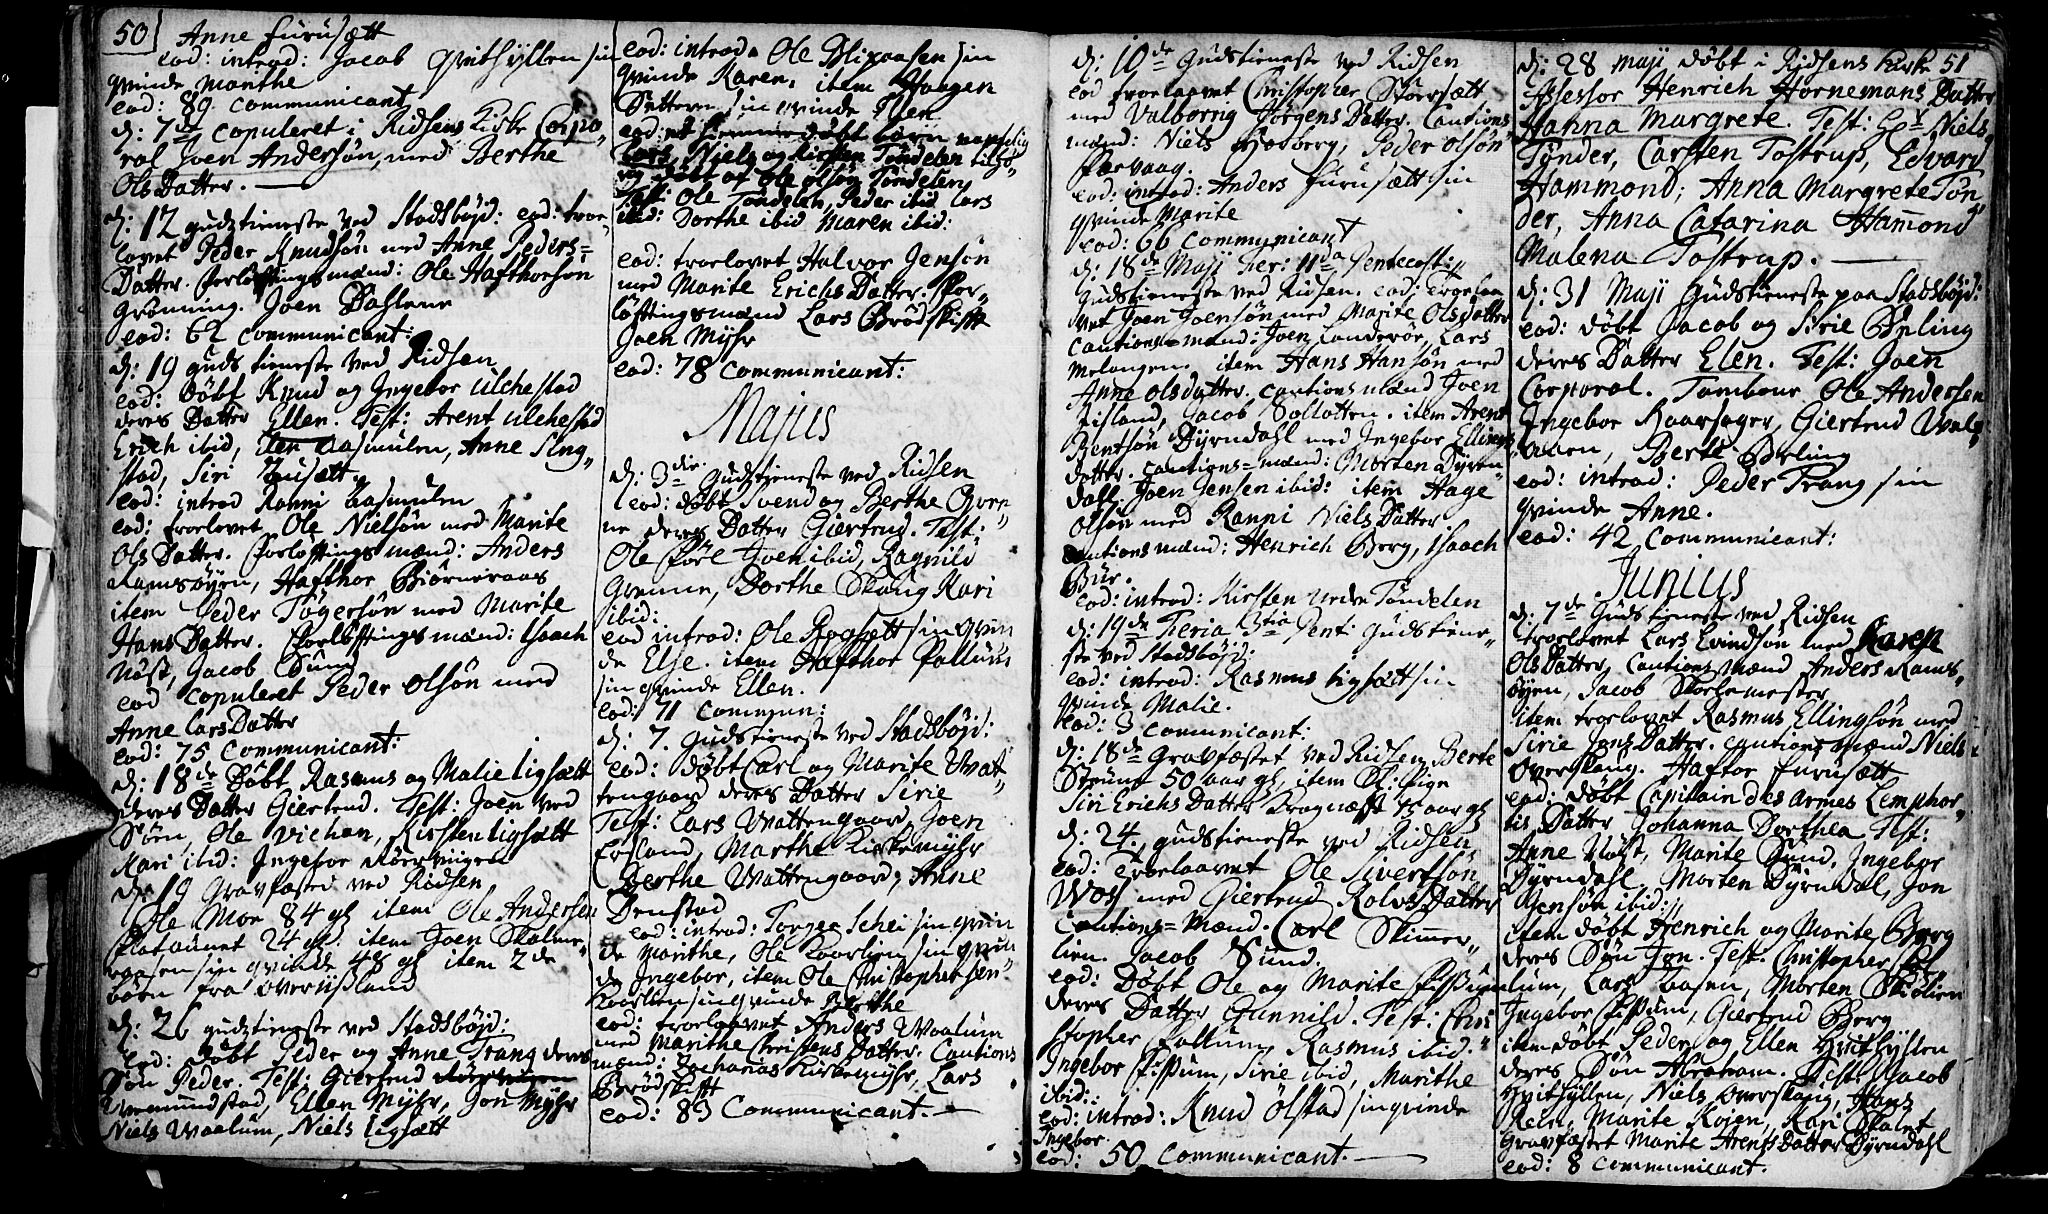 50
Anne Furusætt
eod: introd: Jacob Qvithyllen sin
qvinde Marithe
eod: 89 communicant
d: 7de copuleret i Ridsens Kirke Corpo-
ral Joen Andersøn, med Berthe
Ols Datter.
d: 12 gudstieneste ved Stadsbøjd: eod: troe-
lovet Peder Knudsøn med Anne Peders=
Datter. forløftingsmænd: Ole Hafthorsøn
Grønning. Joen Dahlene
eod: 62 communicant:
d: 19 guds tieneste ved Ridsen
eod: døbt Knud og Ingebor Ulchestad
deres Datter Ellen. Test: Arent Ulchestad
Erich ibid, Elen Aasmulen, Anne Sing-
stad, Siri
eod: introd Ranni Aasmulen
eod: troelovet Ole Nielsøn med Marite
Ols Datter. Forløftings mænd: Anders
Ramsøyen, Hafthor Biørneraas
item Peder Tøgersøn med Marite
Hans Datter. Forløftings mænd: Isaach
Nøst, Jacob Sund
eod copuleret Peder Olsøn med
Anne Lars Datter
eod: 75 communicant:
d: 18de Døbt Rasmus og Malie Ligsætt
deres Datter Giertrud. Test: Joen ved
Søen, Ole Vichan, Kirsten Ligsætt
Kari ibid: Ingebor Rørviigen
d: 19 Gravfæsted ved Ridsen
Ole Moe 84 gl item Ole Andersen
24 gl: item Joen Skalme-
raasen sin qvinde 48 gl item 2de
børn fra Overusland
d: 26 gudstieneste ved Stadsbøjd:
eod: døbt Peder og Anne Trang deres
Søn Peder. Test: Giertrud
Ellen Myhr, Jon Myhr
Niels Waalum, Niels Ligsætt
eod: introd. Ole Blixaasen sin
qvinde Karen. item Haagen
Sætteren sin qvinde Ellen
eod: døbt børn
Lars, Niels og Kirsten Tøndelen
døbt af Ole Olsøn Tøndelen
Test: Ole Tøndelen, Peder ibid Lars
ibid: Dorthe ibid Maren ibid:
eod: troelovet Halvor Jensøn
med Marite Erichs Datter. For-
løftingsmænd Lars Brødskift
Joen Myhr
eod: 78 communicant:
Majus
d: 3die Gudstjeneste ved Ridsen
eod: døbt Svend og Berthe Qven-
ne deres Datter Giertrud. Test:
Ole Iver ibid, Ragnild
Qvenne, Dorthe Skaug Kari
ibid:
eod introd: Ole Rogsætt sin qvin
de Else. item Hafthor Fallun
sin qvinde Ellen.
eod: 71 commun:
d: 7. Gudstieneste ved Stadsbøjd:
eod: døbt Carl og Marite Wat-
tengaard deres Datter Sirie
Test: Lars Wattengaard, Joen
Ersland, Marthe Kirkemyhr
Berthe Wattengaard, Anne
Denstad
eod: introd: Torger Schei sin qvin
de Marithe, Ole Kaarlien sin qvin
de Ingebor, item Ole Christophersen
Kaarlien sin qvinde Berthe
eod: troelaavet Anders Waalum
med Marithe Christens Datter. Cautions
mænd: Zacharias Kirkemyhr, Lars
Brødskift
eod: 83 Communicant.
d: 10de Gudstieneste ved Ridsen
eod troelaavet Christopher Størsætt
med Valborrig Jørgens Datter. Cautions
mænd: Niels Hosberg, Peder Olsøn
Færvaag.
eod: introd: Anders Furusætt sin
qvinde Marite
eod: 66 communicant
d: 18de Maji Fer: IIda Pentecost:
Gudstieneste ved Ridsen. eod: troelaa
vet Joen Joensøn med Marite Olsdatter
Cautions-mænd: Joen Landerøe, Lars
Melangen. item Hans Hansøn med
Anne Olsdatter. Cautions mænd Joen
Fisland, Jacob Solbotten. item Arent
Bentsøn Dyrndahl med Ingebor Ellings
datter. cautions=mænd: Morten Dyren
dahl. Joen Jensen ibid: item Aage
Olsøn med Ranni Niels Datter
Cautions mænd: Henrich Berg, Isaach
Bur.
eod: introd: Kirsten Nedre Tøndelen
d: 19de Feria 3tia Pent: Gudstiene-
ste ved Stadsbøjd:
eod: introd: Rasmus Ligsætt sin
qvinde Malie.
eod: 3 communicant:
d: 18de Gravfæstet ved Ridsen Berte
Strøms 50 aar gl item et: Pige
Siri Erichs Datter Kragnæss 75 aar gl
d: 24. gudstieneste ved Ridsen
eod: Troelaavet Ole Sivertsøn
Woll med Giertrud Rolvs Datter
Cautions=Mænd. Carl Skimmer-
lien. Jacob Sund.
eod: Døbt Ole og Marite Fissum
deres Datter Gunnild. Test: Chri
stopher Fallum, Rasmus ibid:
Ingebor Fissum, Sirie ibid, Marithe
ibid:
eod: introd: Knud Ølstad sin qvinde
Ingebor
eod: 50 communicant.
51
d: 28 Maji døbt i Ridsens Kirke
Assessor Henrich Hornemans Datter
Hanna Margrete. Test: Hr Niels
Tønder, Carsten Tostrup, Edvard
Hammond; Anna Margrete Tøn
der, Anna Catarina Hammond
Malena Tostrup.
d: 31 Maji Gudstieneste paa Stadsbøjd:
eod: døbt Jacob og Sirie Opling
deres Datter Elen. Test: Joen
Corporal. Tambour Ole Andersen
Ingebor Haarsager, Giertrud Wal-
aaen, Berte Opling
eod: introd: Peder Trang sin
qvinde Anne.
eod: 42 communicant:
Junius
d: 7de Gudstieneste ved Ridsen
troelovet Lars Evindsøn med Karen
Ols Datter, Cautions mænd Anders Rams-
øyen, Jacob Skolemester
item troelovet Rasmus Ellingsøn med
Sirie Jons Datter. cautions mænd Niels
Overskaug. Haftor Furusætt
eod: døbt Capitain des Armes Lemphor-
tis Datter Johanna Dorthea Test:
Anne Nøst, Marite Sund, Ingebor
Dyrndahl, Morten Dyrndal, Jon
Jensøn ibid:
item døbt Henrich og Marite Berg
deres Søn Jon. Test: Christopher Fal-
lum, Lars Aasen, Morten Skolien
Ingebor Fissum, Giertrud Berg
item døbt Peder og Ellen Hvithyllen
deres Søn Abraham. Test: Jacob
Hvithyllen, Niels Overskaug, Hans
Rein, Marite Rojen, Kari Skalet
Gravfæstet Marite Arents Datter Dyrndahl
eod: 8 communicant.